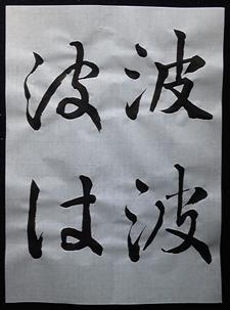 波波
波は